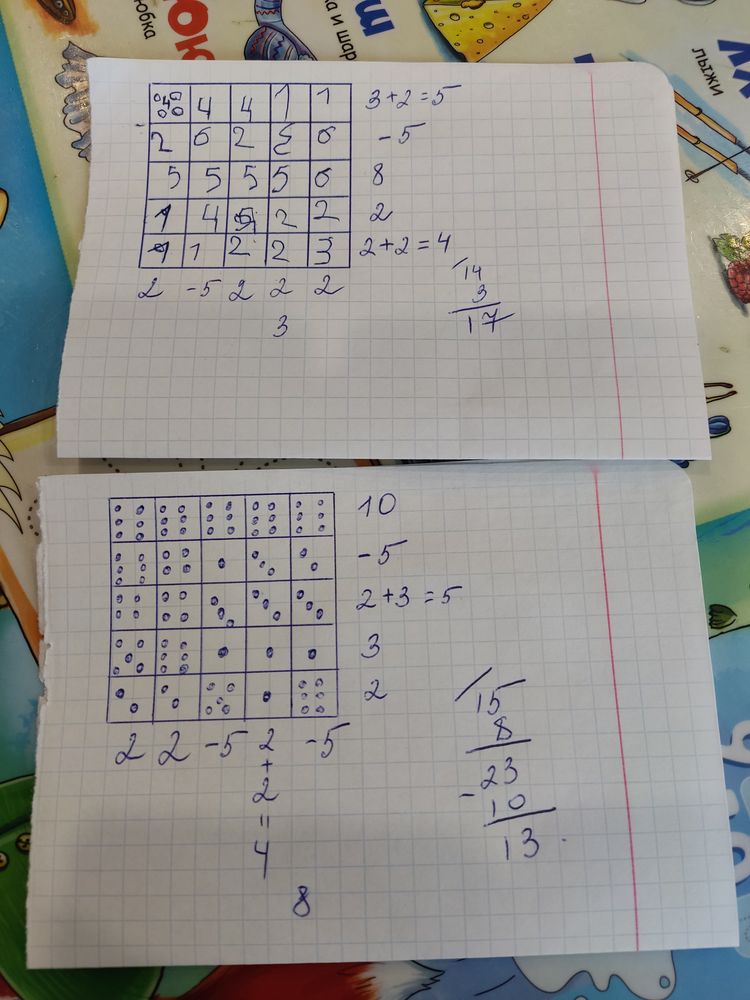 юбка
Ю
ка и шар
Ш
лыжи
4 4 4 1 1 3+2=5
2 6 2 6 6 -5
5 5 5 5 6 8
1 4 5 2 2 2
1 1 2 2 3 2+2=4
2 -5 2 2 2
3
14
3
17
10
-5
2+3=5
3
2
2 2 -5 2 -5
+
2
=
4
8
15
8
-23
10
13